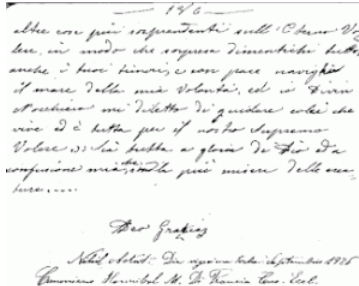 186
altre cose più sorprendenti sull'Eterno Vo-
lere, in modo che sorpresa dimentichi tutto
anche i tuoi timori, e con pace navighi
il mare della mia Volontà, ed io Divin
Nocchiero mi diletto di guidare colei che
vive ed è tutta per il nostro Supremo
Volere. Sia tutto a gloria di Dio ed a
confusione mia, che sono la più misera delle crea-
ture....
Deo Gratias
Nihil Obstat: Die vigesima tertia Septembris 1926
Canonicus Hannibal M. Di Francia Cens. Eccl.